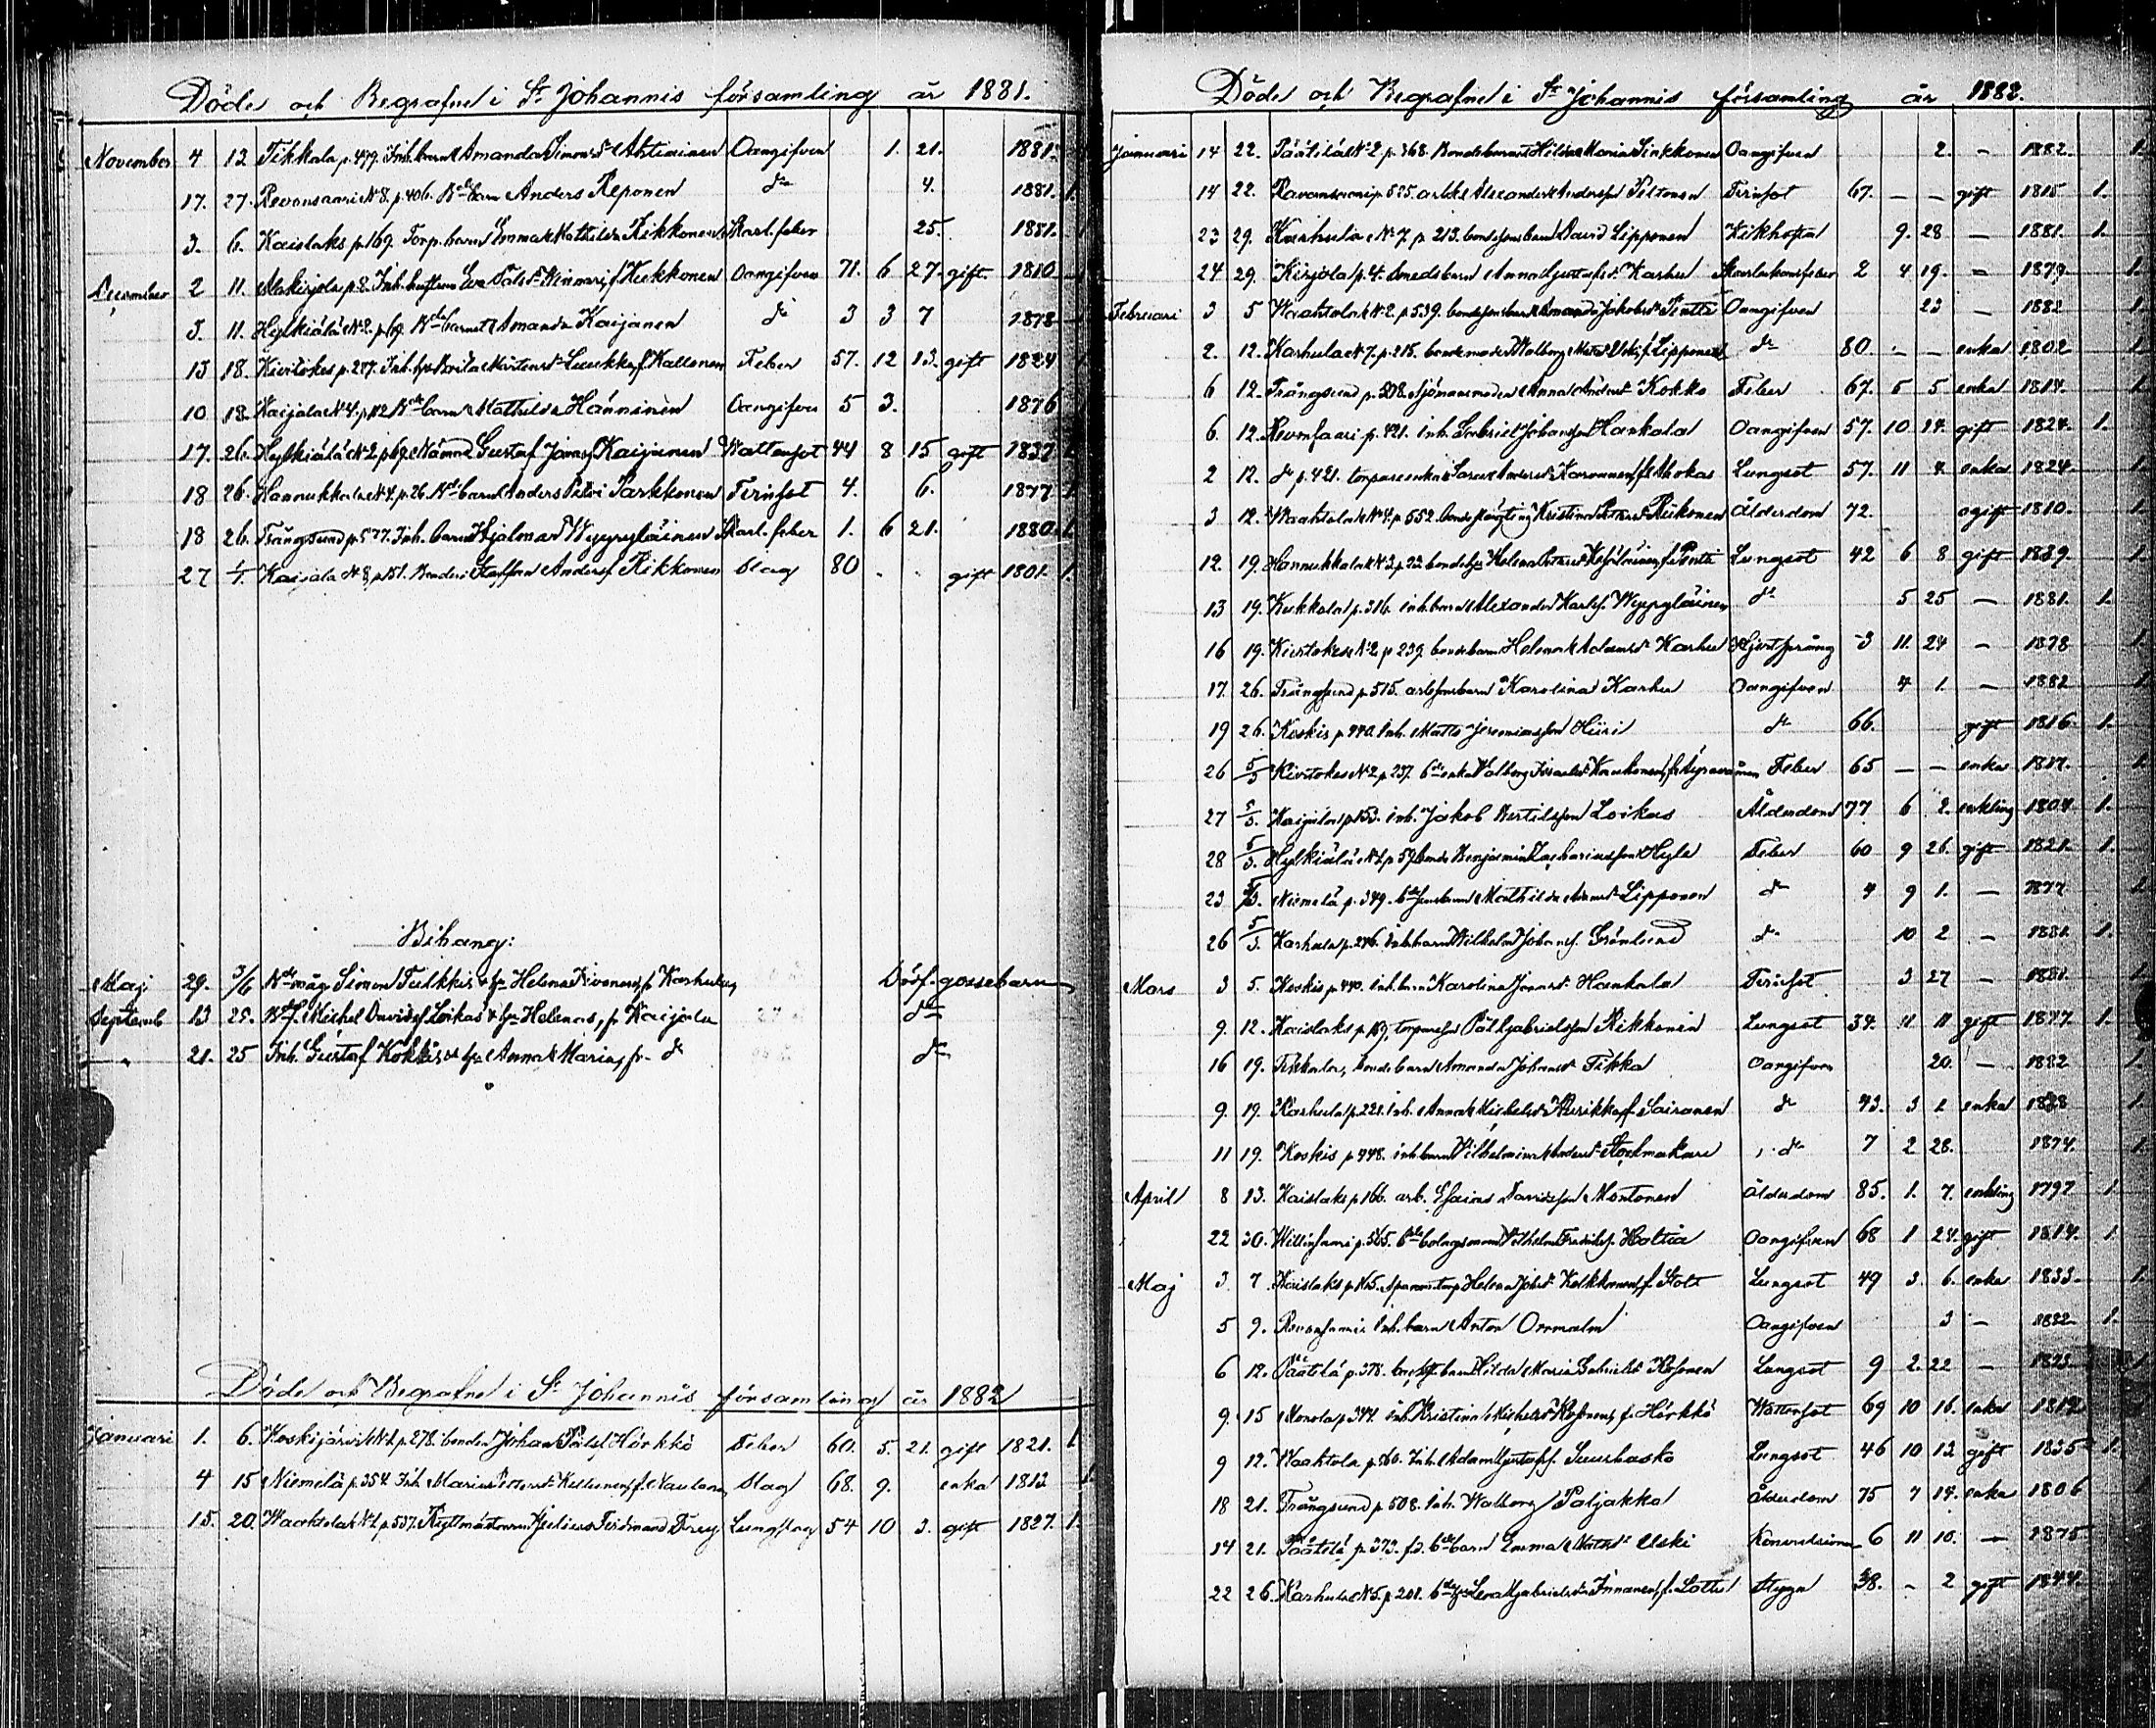 Döde och Begrafne i St Johannis församling år 1881.
November 4 12 Tikkala p. 479. Inh. barnet Amanda Simonsdr Ahtiainen Oangifven 1. 21. 1881.
17. 27. Revonsaari No 8. p. 406. Bde barn Anders Reponen do 4. 1881. 1.
3. 6. Kaislaks p. 169. Torp. barn Emma Mathilda Rikkonen Skarl. feber 25. 1881.
December 2 11. p. 8. Inh. hustrun Eva Pålsdr f. Kukkonen Oangifven 71. 6 27. gift. 1810
3. 11. Hylkiälä No 2. p. 69. Bde barnet Amanda Kaijanen do 3 3 7 1878
13 18. Kiviiokes p. 247. Inh. hu Brita Mårtensdr Luukka f. Kallonen Feber 57. 12 13. gift 1824
10 18. Kaijala No 4. p. 112 Bde barn Mathilda Hänninen Oangifven 5 3. 1876
17. 26. Hylkiälä No 2. p. 69. Nämnd. Gustaf Jonasf. Kaijanen Wattensot 44 8 15 gift 1837 1.
18 26. Hannukkala No 4. p. 26. Bde barn Anders Petri Parkkonen Ferinsot 4. 6. 1877 1.
18 26. Trångsund p. 577. Inh. barn Hjalmar Wyyryläinen Skarl. feber 1. 6 21. 1880. 1.
27 1/1. Kaijala No 8, p. 151. Bonden Staffan Andersf. Rikkonen Slag 80 gift 1801. 1.
Bihang:
Maj 29. 3/6 Bde måg Simon Tulkki & hu Helena Kivonen, fr Karhula, Dödf. gossebarn
Septemb 13 25. Bdef. Michel Davidsf. Loikas & hu Helenas, fr Kaijala do
" 21. 25 Inh. Gustaf Kokkis & hu Anna Marias, fr. do do
Döde och Begrafne i St Johannis församling år 1882
Januari 1. 6. Koskijärvi No 1. p. 278. bonden Johan Pålsf. Hörkkö Feber 60. 5. 21. gift 1821. 1
4 15 Niemelä p. 354. Inh. Maria Kellunen, f. Naulanen Slag 68. 9. enka 1813 1
15. 20. Waahtola No 1. p. 537. Ryttmästaren Julius Ferdinand Frey Lungslag 54 10 3. gift 1827. 1.
Döde och Begrafne i St Johannis församling år 1882.
Januari 14 22. Päätilä No 2 p. 368. Bondebarnet Hilda Maria Sinkkonen Oangifven 2. — 1882. 1.
14 22. Ravansaari p. 525. arbk. Alexander Andersson Peltonen Ferinsot 67. — — gift 1815 1.
23 29. Karhula No 7. p. 213. bondesonsbarn David Lipponen Kikhosta 9. 28 — 1881. 1.
24 29. Kirjola p. 4. smedsbarn Anna Gustafsdr Karhu Skarlakansfeber 2 4 19. — 1877. 1.
Februari 3 5 Waahtola No 2. p. 539. bondesonsbarn Amanda Jakobsdr Pentti Oangifven 23 — 1882 1.
2. 12. Karhula No 7. p. 215. bondemoder Walborg Matsdr Uski, f. Lipponen do 80. — — enka 1802 1
6 12. Trångsund p. 508. Sjömansmoder Anna Andersdr Kokko Feber 67. 5 5 enka 1814. 1.
6. 12. Revonsaari p. 421. inh. Gabriel Johansson Hankala Oangifven 57. 10 24. gift 1824. 1.
2 12. do p. 421. torpareenkan Sara Andersdr Karonen f. Ahokas Lungsot 57. 11 4 enka 1824 1.
3 12. Waahtola No 4. p. 552. Kristina Rikonen Ålderdom 72. ogift 1810. 1.
12. 19. Hannukkala No 2. p. 22 bondehu Helena f. Pentti Lungsot 42 6 8 gift 1839. 1.
13 19. Kukkola p. 316. inh. barn Alexander Karlsf. Wyyryläinen do 5 25 — 1881. 1.
16 19. Kiviiokes No 2. p. 239. bondebarn Helena Adamsdr Karhu Hjertsprång 3 11. 24 — 1878 1.
17. 26. Trångsund p. 515. arbetarebarn Karolina Karhu Oangifven 4 1. — 1882 1.
19 26. Koskis p. 440. Inh. Matts Jeremiasson Hiiri do 66. gift 1816. 1.
26 5/3 Kiviiokes No 2. p. 237. bde enka Walborg Feber 65 — — enka 1817. 1.
27 5/3. Kaijala p. 153. inh. Jakob Bertilsson Loikas Ålderdom 77 6 2. enkling 1804 1.
28 5/3. Hylkiälä No 1. p. 59. bonde Benjamin Zachariasson Hyle Feber 60 9 26. gift 1821. 1.
23 5/3. Niemelä p. 349. Mathilda Lipponen do 4 9 1. — 1877 1.
26 5/3. Karhula p. 246. inh. barn Wilhelm Johansf. Grönlund do 10 2 — 1881. 1.
Mars 3 5. Koskis p. 440. inh. barn Karolina Jonasdr Hankala Ferinsot 3 27 — 1881. 1.
9. 12. Kaislaks p. 169, torparesf. Pål Gabrielsson Rikkonen Lungsot 34. 11 11 gift 1847 1.
16 19. Tikkala, bondebarn Amanda Johansdr Tikka Oangifven 20. — 1882
9. 19. Karhula p. 221. inh. Anna Michelsdr f. Sairanen do 43. 3 2 enka 1838
11 19. Koskis p. 448. inh. barn Wilhelmina Andersdr do 7 2 28. 1874. 1.
April 8 13. Kaislaks p. 166. arb. Esaias Davidsson Montonen Ålderdom 85. 1. 7. enkling 1797 1.
22 30. Willinsaari p. 565. Wilhelm Fredriksf. Holtia Oangifven 68 1 24. gift 1814. 1.
Maj 3. 7. Kaislaks p. 165. Helena Johsdr Kukkonen f. Stolt Lungsot 49 3. 6. enka 1833. 1.
5 9. Revonsaari inh. barn Anton Ommalm Oangifven 3 — 1882 1.
6 12. Päätilä p. 378. barn Hilda Maria Gabrielsdr Kosonen Lungsot 9 2. 22 — 1873
9. 15 Monola p. 344. inh. Kristina Michelsdr Kosonen, f. Hörkkö Wattensot 69 10 16. enka 1812
9 12. Waahtola p. 560. Inh. Adam Gustafsf. Suurhasko Lungsot 46 10 12 gift 1835 1.
18 21. Trångsund p. 508. Inh. Walborg Paljakka Ålderdom 75 7 14. enka 1806
14 21. Päätilä p. 373. fd. bde barn Emma Matsdr Uski Konvulsioner 6 11 10. — 1875
22 26. Karhula No 5. p. 201. bde hu Lena Gabrielsdr Innanen, f. Lotta Stygn 38. — 2 gift 1844.